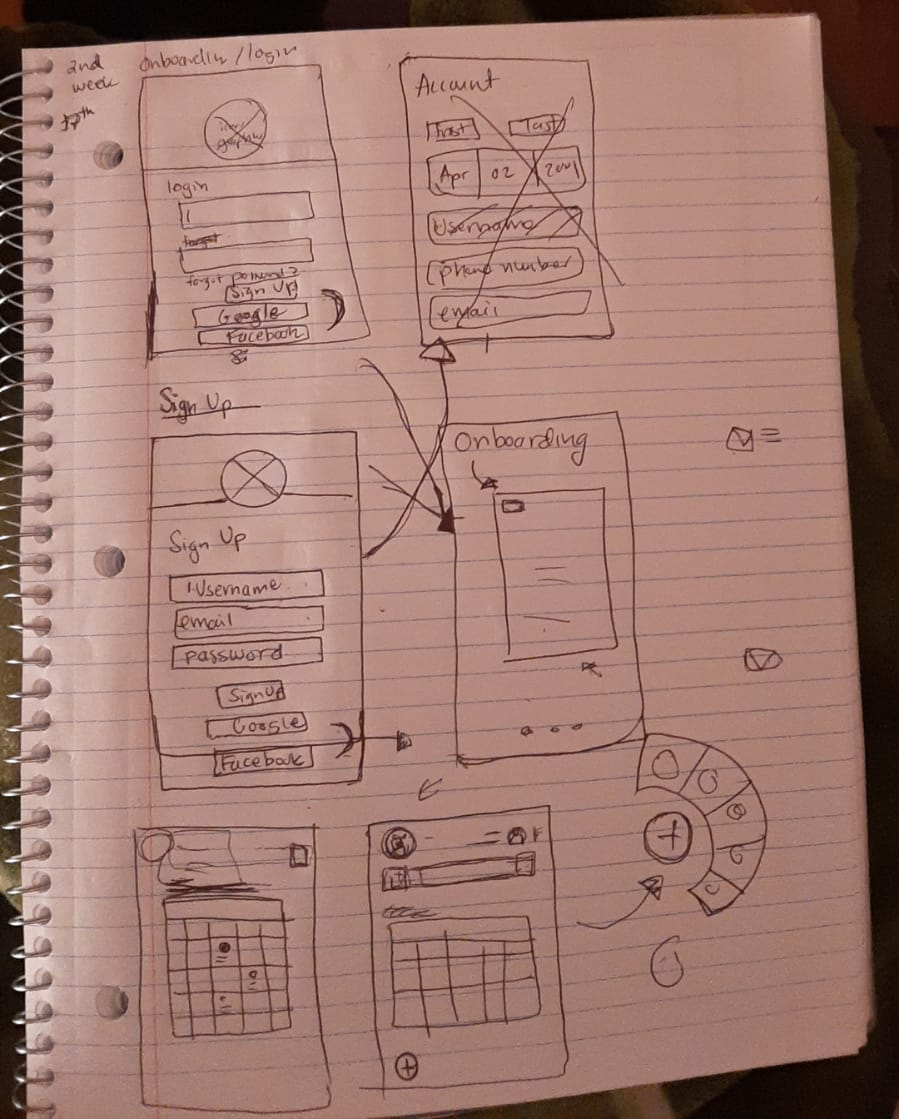 2nd
week
17th
Onboardin / login
login
forgot password?
Sign Up
Google
Facebook
Account
First
Last
Apr
02
2001
Username
phone number
email
Sign Up
Sign Up
Username
email
password
Sign Up
Google
Facebook
Onboarding